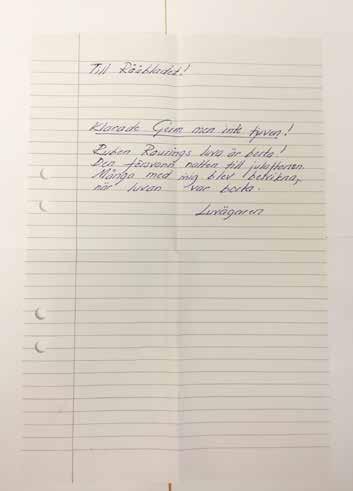 Till Rååbladet!
Klarade Grim men inte tjuven!
Ruben Rausings luva är borta!
Den försvann natten till julafton.
Många med mig blev bekikna,
när luvan var borta.
Luvägaren